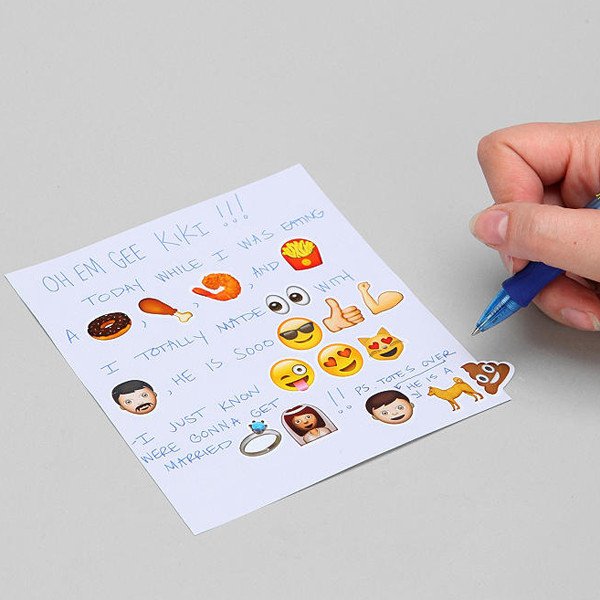 OH EM GEE KIKI !!!
TODAY WHILE I WAS EATING
A 🍩, 🍗, 🍤, AND 🍟
I TOTALLY MADE 👀 WITH
👨, HE IS SOOO 😎 👍 💪
I JUST KNOW 😜 😍 😻
WERE GONNA GET
MARRIED 💍 👰 !! PS TOTES OVER
👦, HE IS A 🐕 💩